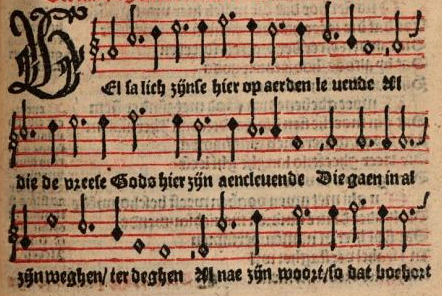 WEl salich zijnse hier op aerden le uende Al
die de vreese Gods hier zijn aencleuende Die gaen in al
zijn weghen/ ter deghen Al nae zijn woort/so dat behort